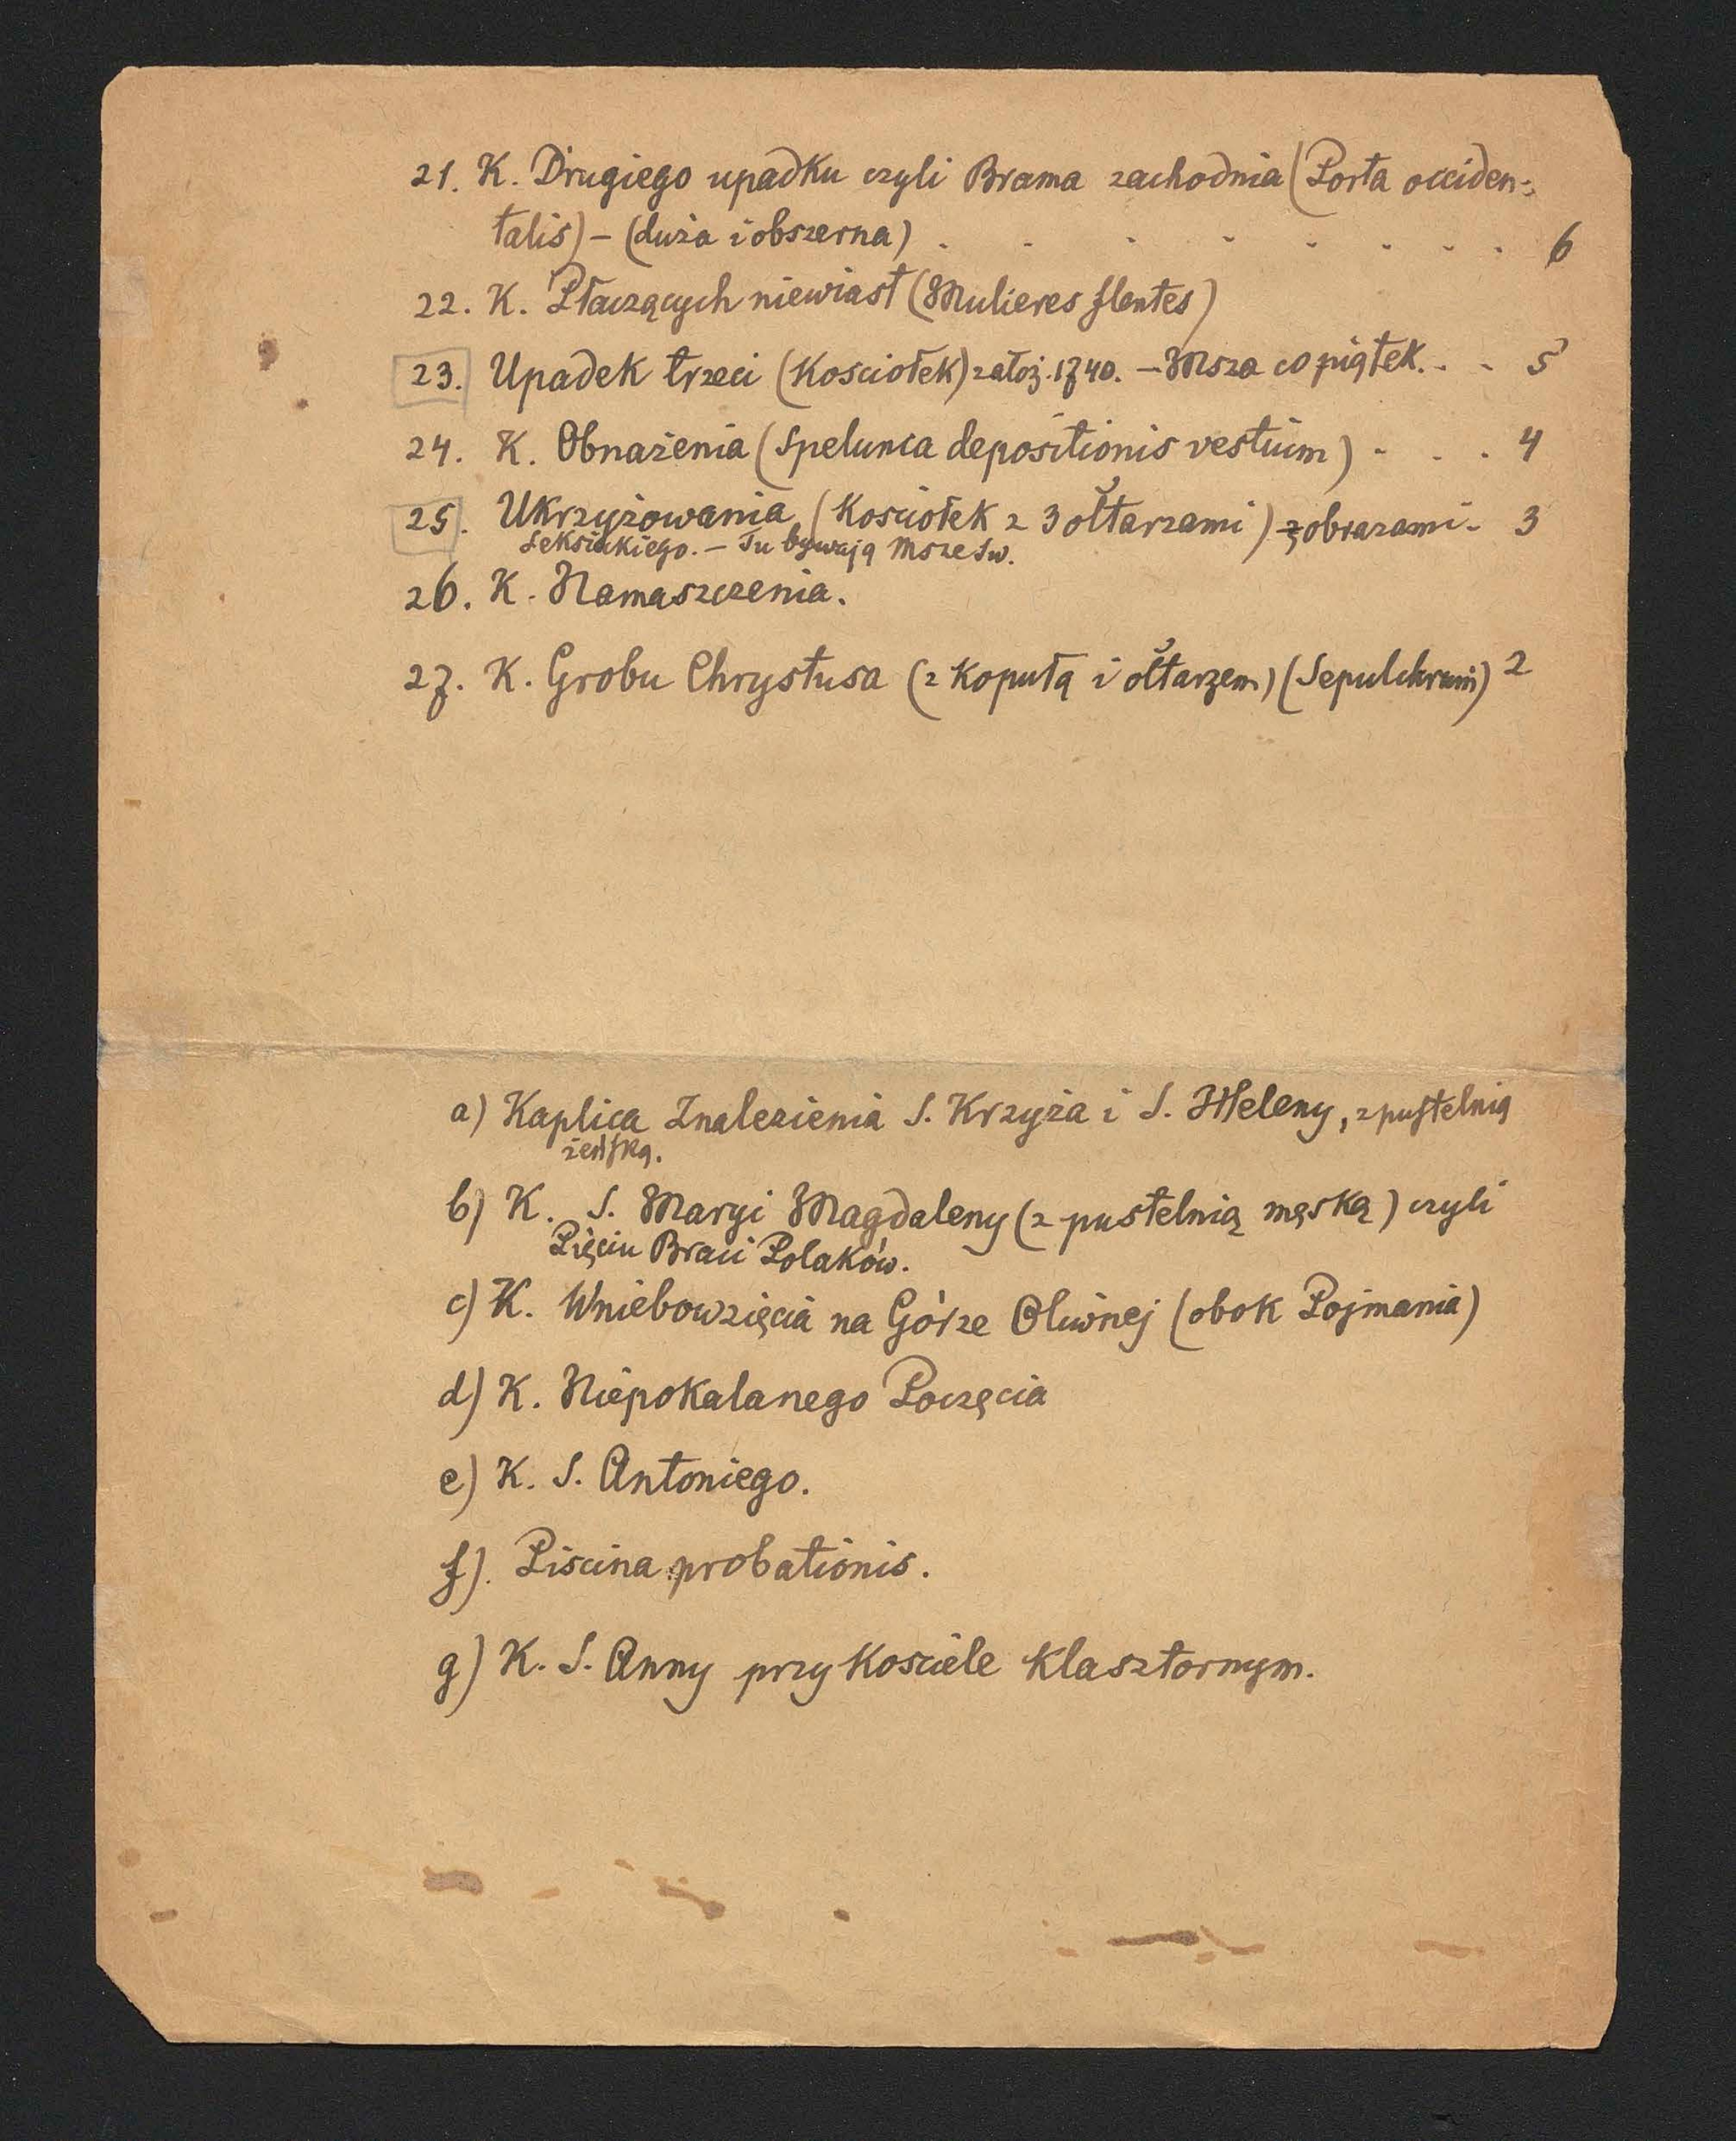 21. K. Drugiego upadku czyli Brama zachodnia (Porta occiden-
talis) – (duża i obszerna) . . . . . . . . 6
22. K. Płaczących niewiast (Mulieres flentes)
23. Upadek trzeci (Kościołek) założ. 1740. – Msza co piątek. . . 5
24. K. Obnażenia (Spelunca depositionis vestium) . . . 4
25. Ukrzyżowania (Kościołek z 3 ołtarzami) z obrazami - 3
Leksickiego. – Tu bywają Msze św.
26. K. Namaszczenia.
27. K. Grobu Chrystusa (z kopułą i ołtarzem) (Sepulchrum) 2
a) Kaplica Znalezienia S. Krzyża i S. Heleny, z pustelnią
żeńską.
b) K. S. Maryi Magdaleny (z pustelnią męską) czyli
Pięciu Braci Polaków.
c) K. Wniebowzięcia na Górze Oliwnej (obok Pojmania)
d) K. Niepokalanego Poczęcia
e) K. S. Antoniego.
f). Piscina probationis.
g) K. S. Anny przy Kościele klasztornym.